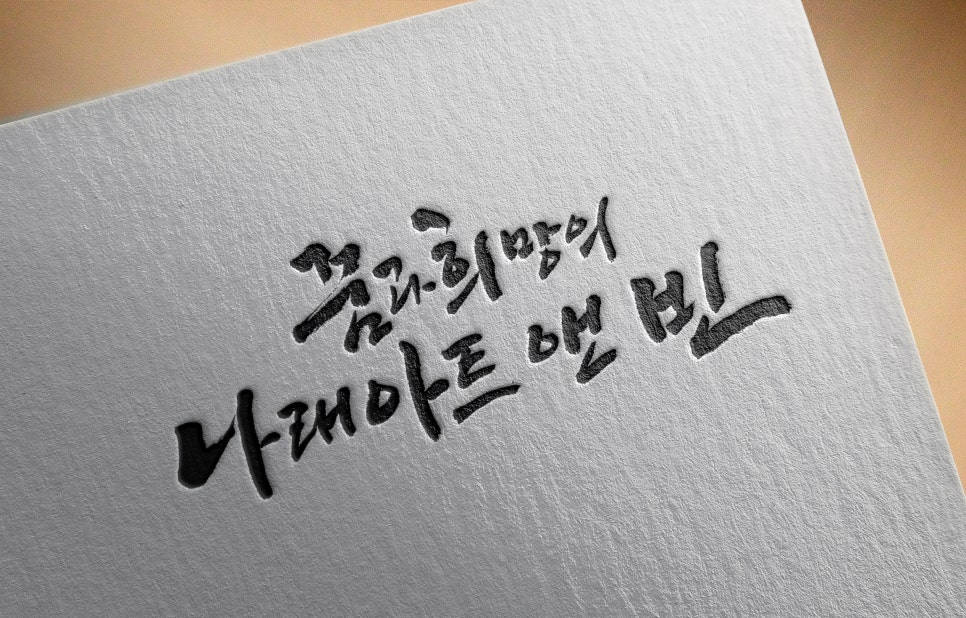 꿈과희망의
나래아트 앤 빈